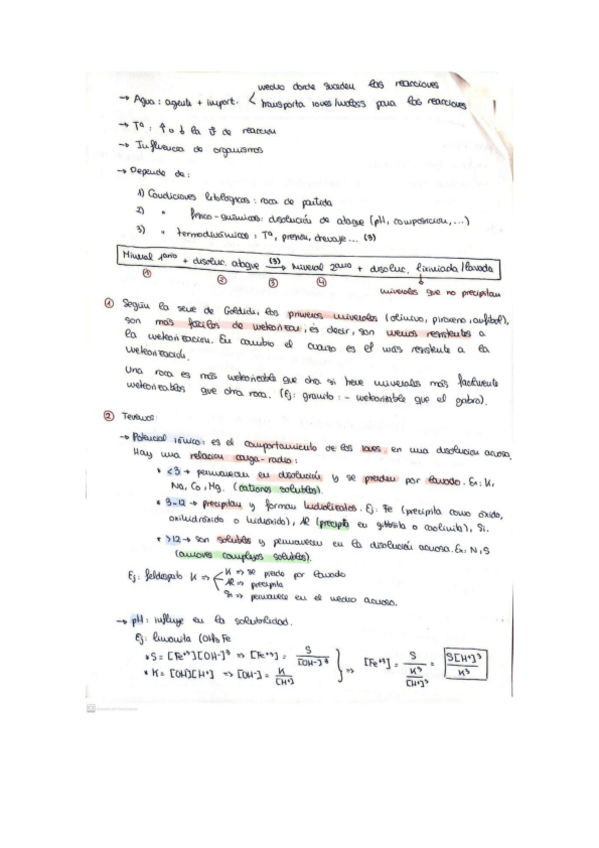 medio donde suceden las reacciones
→ Agua: agente + import. < transporta iones/moléc para las reacciones
→ Tª: ↑ o ↓ la v de reacción
→ Influencia de organismos
→ Depende de:
1) Condiciones litológicas: roca de partida
2) " físico-químicas: disolución de ataque (pH, composición, ...)
3) " termodinámicas: Tª, presión, drenaje... (3)
Mineral 1ario + disoluc. ataque (3)→ mineral 2ario + disoluc. lixiviada/lavada
① ② ③ ④
minerales que no precipitan
① Según la serie de Goldich, los primeros minerales (olivino, piroxeno, anfíbol),
son más fáciles de meteorizar, es decir, son menos resistentes a
la meteorización. En cambio el cuarzo es el más resistente a la
meteorización.
Una roca es más meteorizable que otra si tiene minerales más fácilmente
meteorizables que otra roca. (Ej: granito: - meteorizable que el gabro).
② Tenemos:
→ Potencial iónico: es el comportamiento de los iones en una disolución acuosa.
Hay una relación carga-radio:
* <3 → permanecen en disolución y se pierden por lavado. Ex: K,
Na, Ca, Mg. (cationes solubles).
* 3-12 → precipitan y forman hidrolizados. Ej: Fe (precipita como óxido,
oxihidróxido o hidróxido), Al (precipita en gibbsita o caolinita), Si.
* >12 → son solubles y permanecen en la disolución acuosa. Ex: N, S
(aniones complejos solubles).
Ej: feldespato K ⇒ K ⇒ se pierde por lavado
Al ⇒ precipita
Si ⇒ permanece en el medio acuoso.
→ pH: influye en la solubilidad.
Ej: limonita (OH)₃Fe
* S = [Fe⁺³][OH⁻]³ ⇒ [Fe⁺³] = S / [OH⁻]³
* K = [OH][H⁺] ⇒ [OH⁻] = K / [H⁺]
⇒ [Fe⁺³] = S / (K³ / [H⁺]³) = S[H⁺]³ / K³